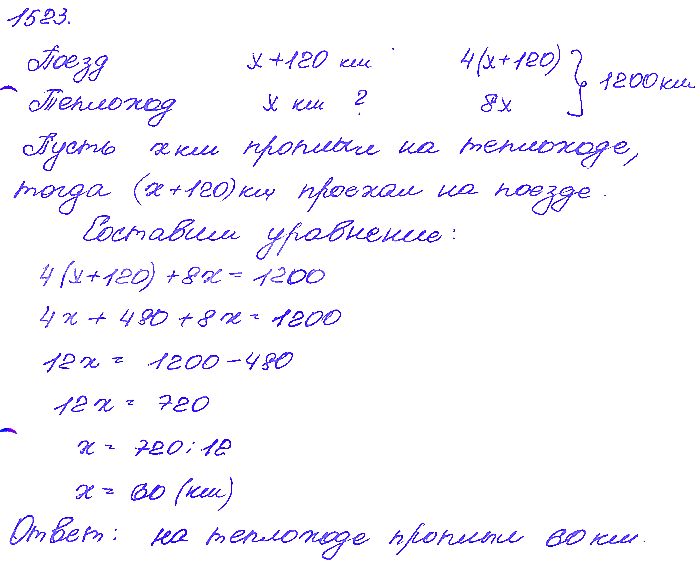 1523.
Поезд x+120 км 4(x+120) } 1200км
Теплоход x км ? 8x
Пусть x км проплыл на теплоходе,
тогда (x+120)км проехал на поезде.
Составим уравнение:
4(x+120)+8x=1200
4x+480+8x=1200
12x = 1200-480
12x = 720
x = 720:12
x = 60 (км)
Ответ: на теплоходе проплыл 60км.